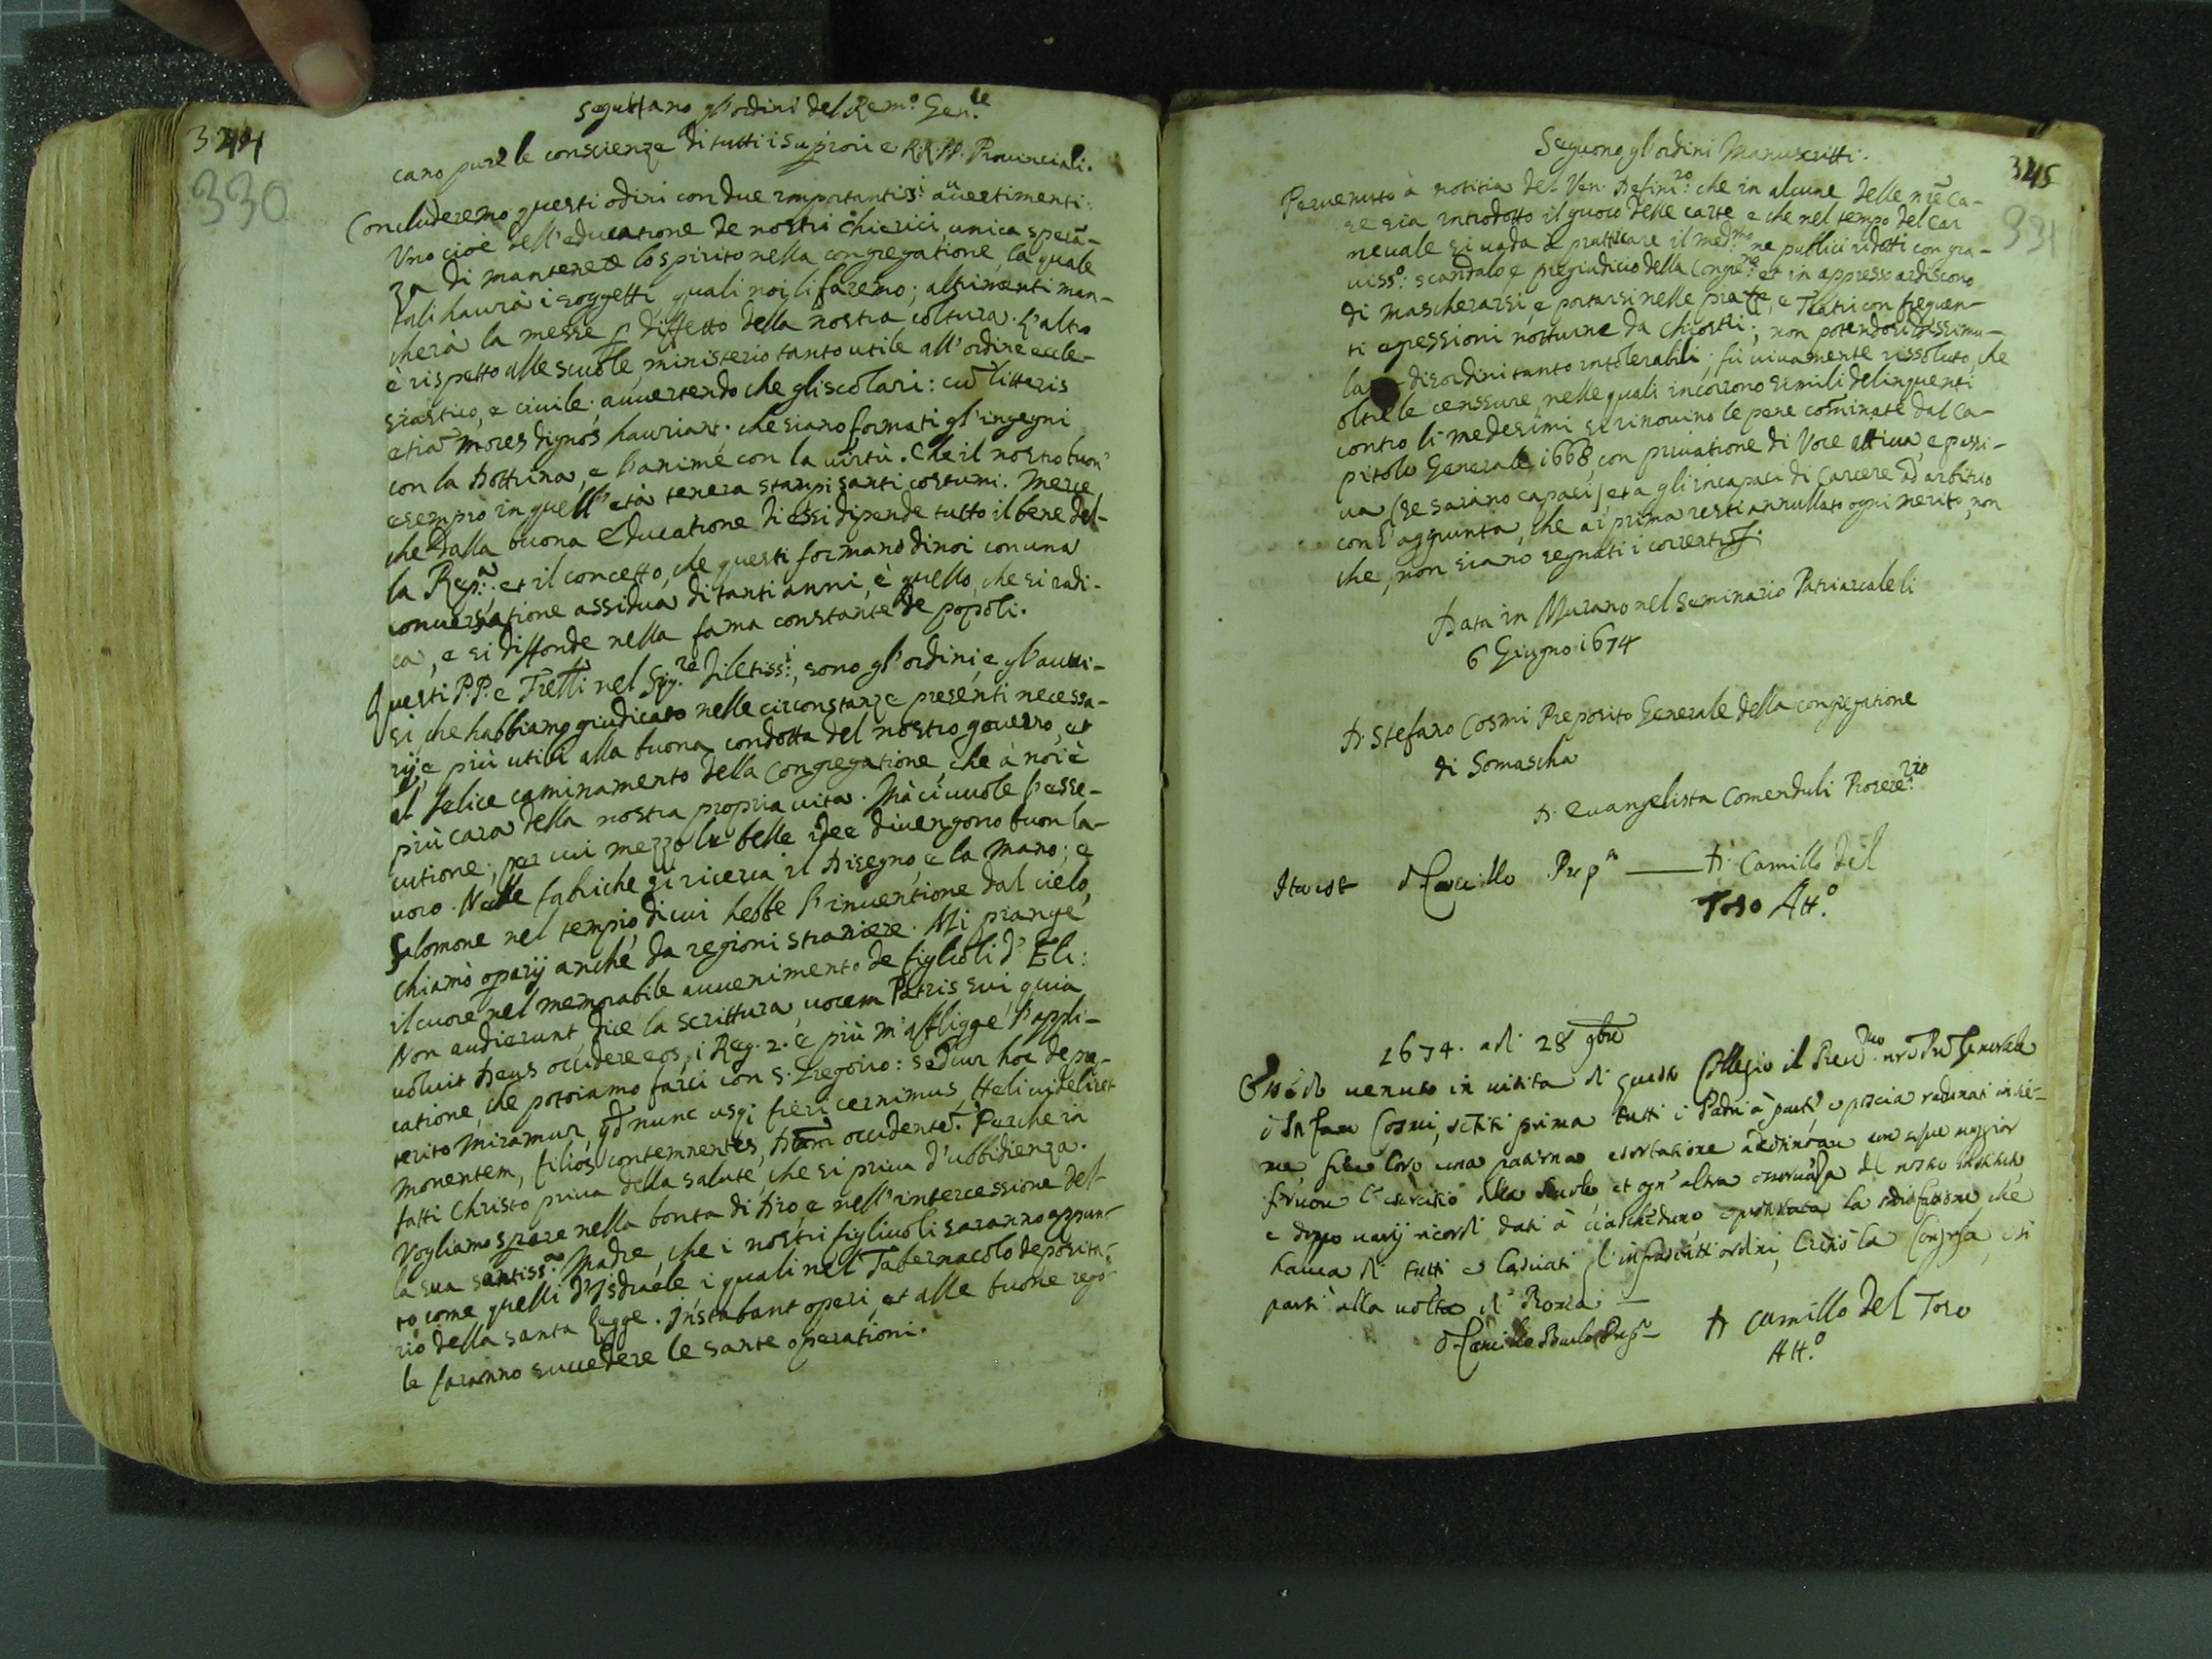 324
330
Seguitano gl'ordini del Rem.º Gen.le
cano pure le conscienze di tutti i Supiori e R.R.P.P. Provinciali.
Concluderemo questi odini con due importantiss.i auuertimenti:
Vno cioè dell'educatione de nostri chierici, unica sperā-
za di mantenere lo spirito nella congregatione, la quale
tali haurà i soggetti, quali noi li faremo; altrimenti man-
cherà la messe p diffetto della nostra coltura. L'altro
è rispetto alle scuole, ministerio tanto utile all'ordine eccle-
siastico, e ciuile; auuertendo che gli scolari: cū litteris
etiā mores dignos hauriant. che siano formati gl'ingegni
con la Dottrina, e l'anime con la uirtù. Che il nostro buon
esempio in quell'età tenera stampi santi costumi. Merce
che dalla buona Educatione di essi dipende tutto il bene del-
la Rep.a; et il concetto, che questi formano di noi con una
conuersatione assidua di tanti anni, è quello, che si radi-
ca, e si diffonde nella fama constante de popoli.
Questi P.P. e Frelli nel Sig.re Dilettiss.i, sono gl'ordini, e gl'auui-
si, che habbiamo giudicato nelle circonstanze presenti necessa-
rij, e più utili alla buona condotta del nostro gouerno, et
al felice caminamento della Congregatione, che à noi è
più cara della nostra propria uita. Mà ci uuole l'esse-
cutione; per cui mezzo le belle idee diuengono buon la-
uoro. Nelle fabriche si ricerca il disegno, e la mano; e
Salomone nel tempio, di cui hebbe l'inuentione dal cielo,
chiamò operij anche da regioni straniere. Mi piange
il cuore nel memorabile auuenimento de figliuoli d'Eli:
Non audierunt, dice la scrittura, uocem Patris sui, quia
uoluit Deus occidere eos, i Reg. 2. e più m'affligge l'appli-
catione, che potoiamo farci con S. Gregorio: sed cur hoc de pre-
terito miramur, qd nunc usqi fieri cernimus, Heli uidelicet
monentem, filios contemnentes, Dnm occidente. Perche in
fatti Christo priua della salute, che si priua d'ubbidienza.
Vogliamo sperare nella bontà di Dio, e nell'intercessione del-
la sua santiss.a Madre, che i nostri figliuoli saranno appun-
to come quelli d'Isdraele, i quali nel Tabernacolo deposita-
rio della santa legge. Instabant operi, et alle buone rego-
le faranno succedere le sante operationi.
345
331
Seguono gl'ordini Manuscritti.
Peruenuto à notitia del Ven. Defini.to: che in alcune delle nrē Ca-
se sia introdotto il guoco delle carte e che nel tempo del Car
neuale si uada à pratticare il med.mo ne publici ridotti con gra-
uiss.o: scandalo, e pregiudicio della Congre.ne et in appresso ardiscono
di mascherarsi e portarsi nelle piazze, e Teatri con frequen-
ti egressioni notturne da chiostri; non potendosi dissimu-
la disordini tanto intolerabili; fù uiuamente rissoluto, che
oltre le censsure, nelle quali incorrono simili delinquenti
contro li medesimi si rinouino le pene cōminate dal Ca-
pitolo Generale 1668, con priuatione di Voce attiua, e passi-
ua (se sarano capaci) et a gli incapaci di Carcere ad arbitrio
con l'aggiunta, che ai prima resti annullato ogni merito, non
che, non siano segnati i correnti.
Data in Murano nel Seminario Patriarcale li
6 Giugno 1674
D. Stefano Cosmi Preposito Generale della congregatione
di Somascha
D. Euangelista Comenduli Prosere.rio
Ita est D. Camillo Prep.to — D. Camillo Del
Toso Att.o
1674. adi 28 9bre
Essēdo uenuto in uisita di questo Collegio il Reu.mo nro Pre Generale
D. Stefano Cosmi, sētiti prima tutti i Padri à parte, e poscia radunati insie-
me, fece loro una paterna esortatione
feruore l'esercitio delle Scuole, et ogn'altra osseruāza del nostro instituto
e doppo uarij ricordi dati à ciascheduno la sodisfattione che
haueua di tutti e lasciati gl'infrascritti ordini,
parti alla uolta di Roma —
D. Camillo Prep.to — D. Camillo Del Toso
Att.o